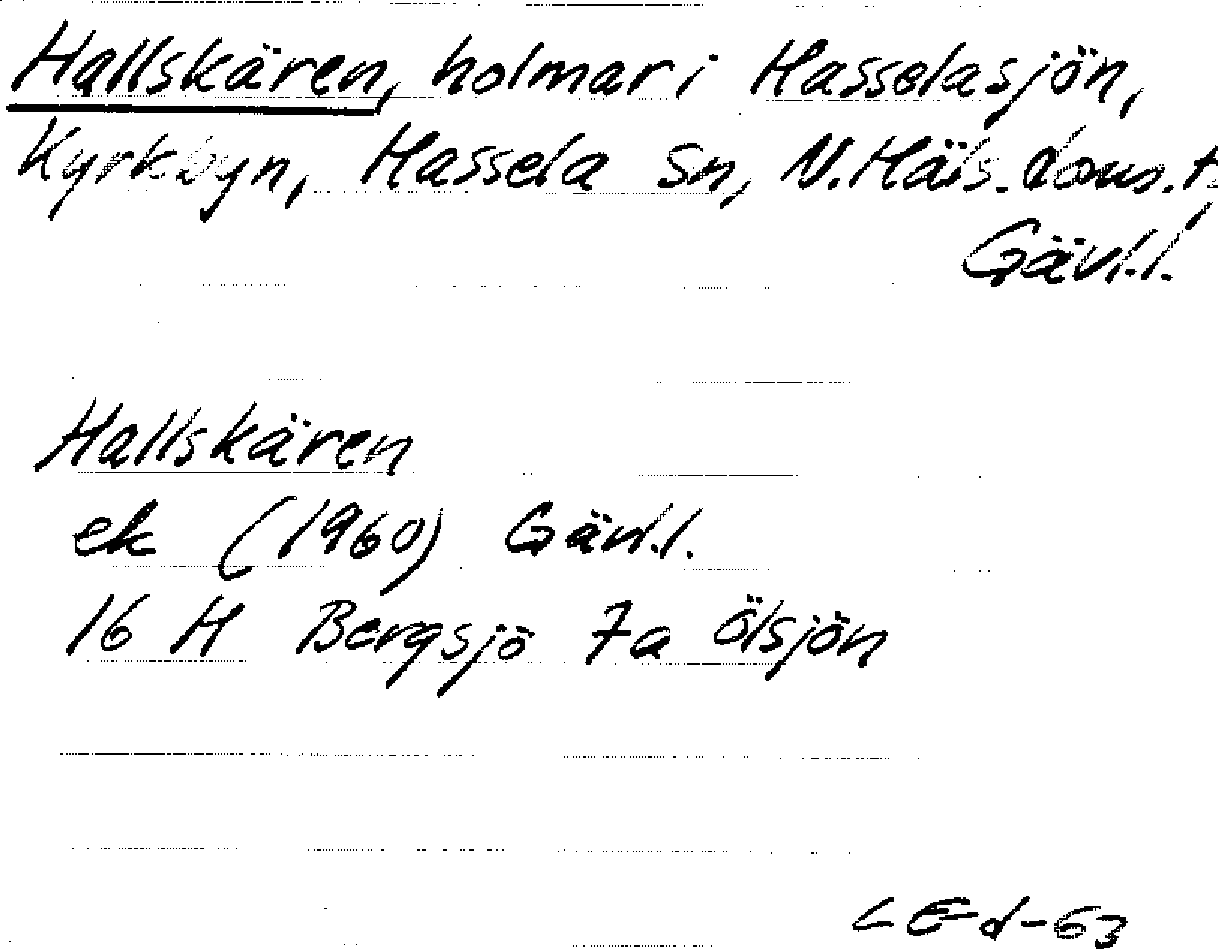 Hallskären, holmar i Hasselasjön,
Kyrkbyn, Hassela sn, N.Häls. doms.
Gävl.l.
Hallskären
ek (1960) Gävl.l.
16 H Bergsjö 7a Ölsjön